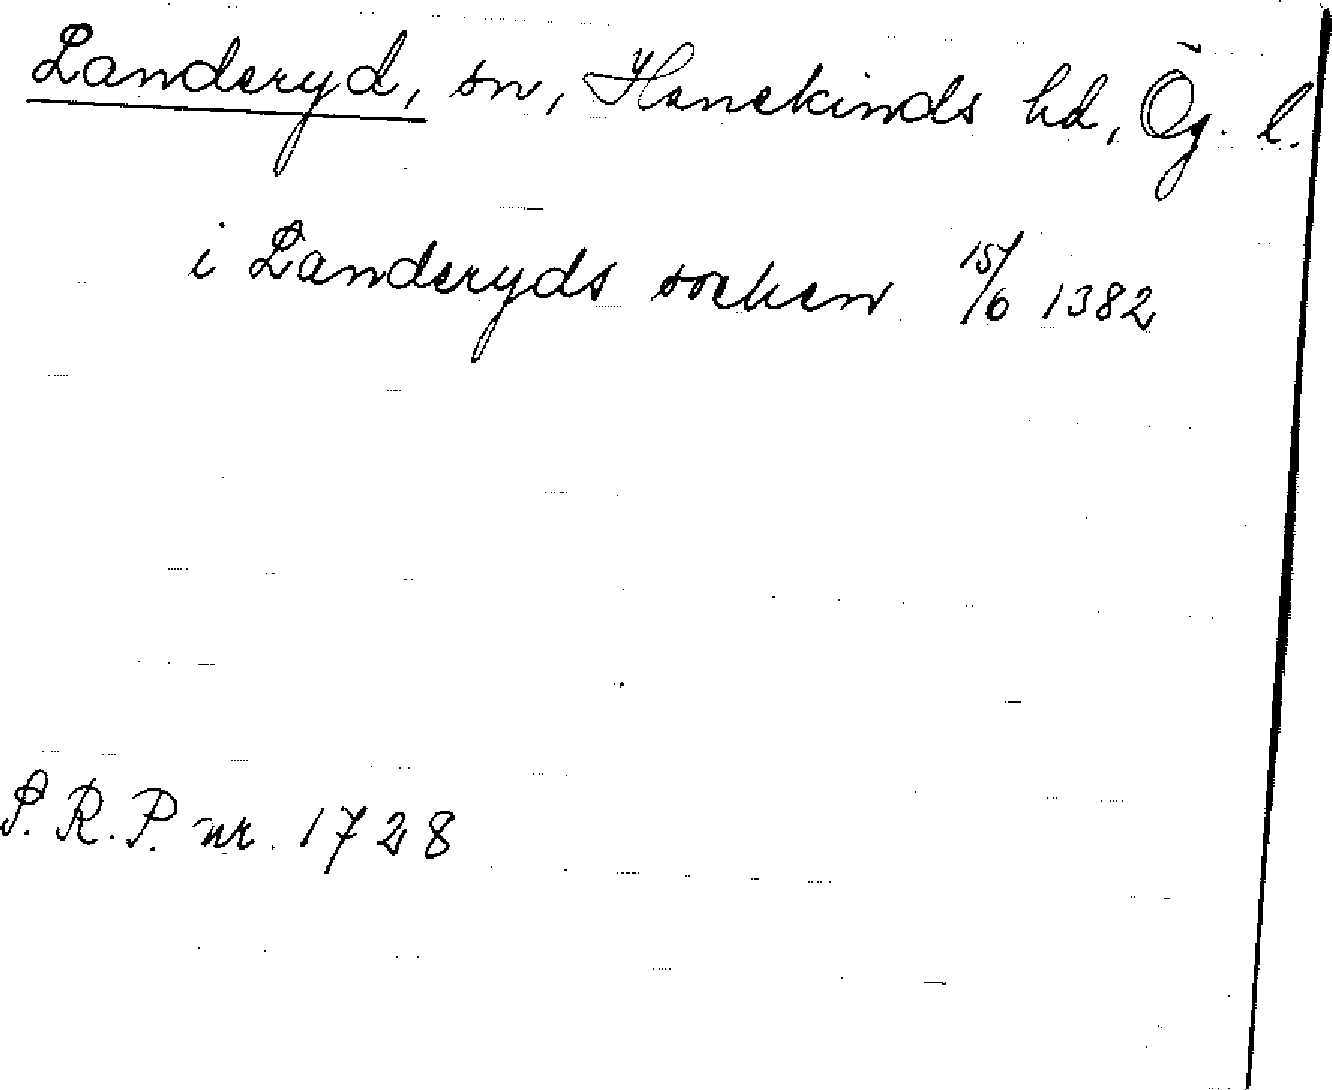 Landeryd, sn, Hanekinds hd, Ög. l.
i Landeryds socken 15/6 1382
S. R. P. nr. 1728